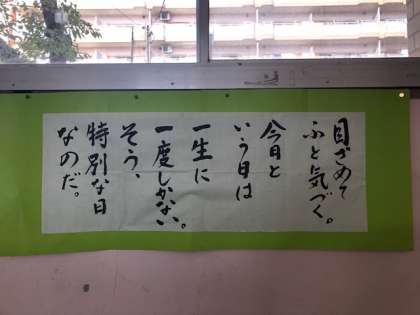 目ざめて
ふと気づく。
今日と
いう日は
一生に
一度しかない。
そう、
特別な日
なのだ。